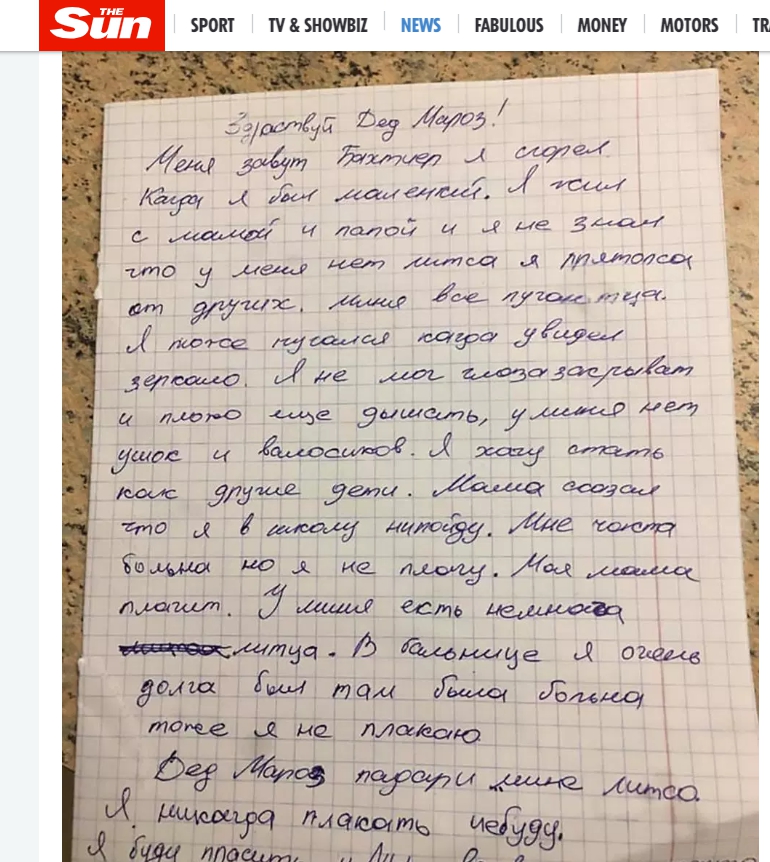 THE
Sun
SPORT
TV & SHOWBIZ
NEWS
FABULOUS
MONEY
MOTORS
TR
Здраствуй Дед Мароз!
Меня завут Бахтиер я сгорел.
Кагда я был маленкий. Я жил
с мамай и папой и я не знал
что у меня нет литса я прятолса
от других. миня все пугаютца.
Я тоже пугался кагда увидел
зеркало. Я не мог глоза закрыват
и плохо еще дышать, у миня нет
ушок и валосиков. Я хачу стать
как другие дети. Мама сказал
что я в школу нипойду. Мне часта
больна но я не плачу. Моя мама
плачит. У миня есть немнога
литца. В бальнице я очень
долга был там была больна
тоже я не плакаю
Дед Мароз падари мине литсо.
Я никагда плакать небуду.
Я буди